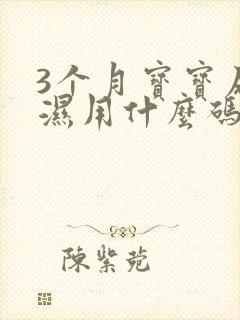 3个月寶寶
濕用什麼碼
陳紫菀